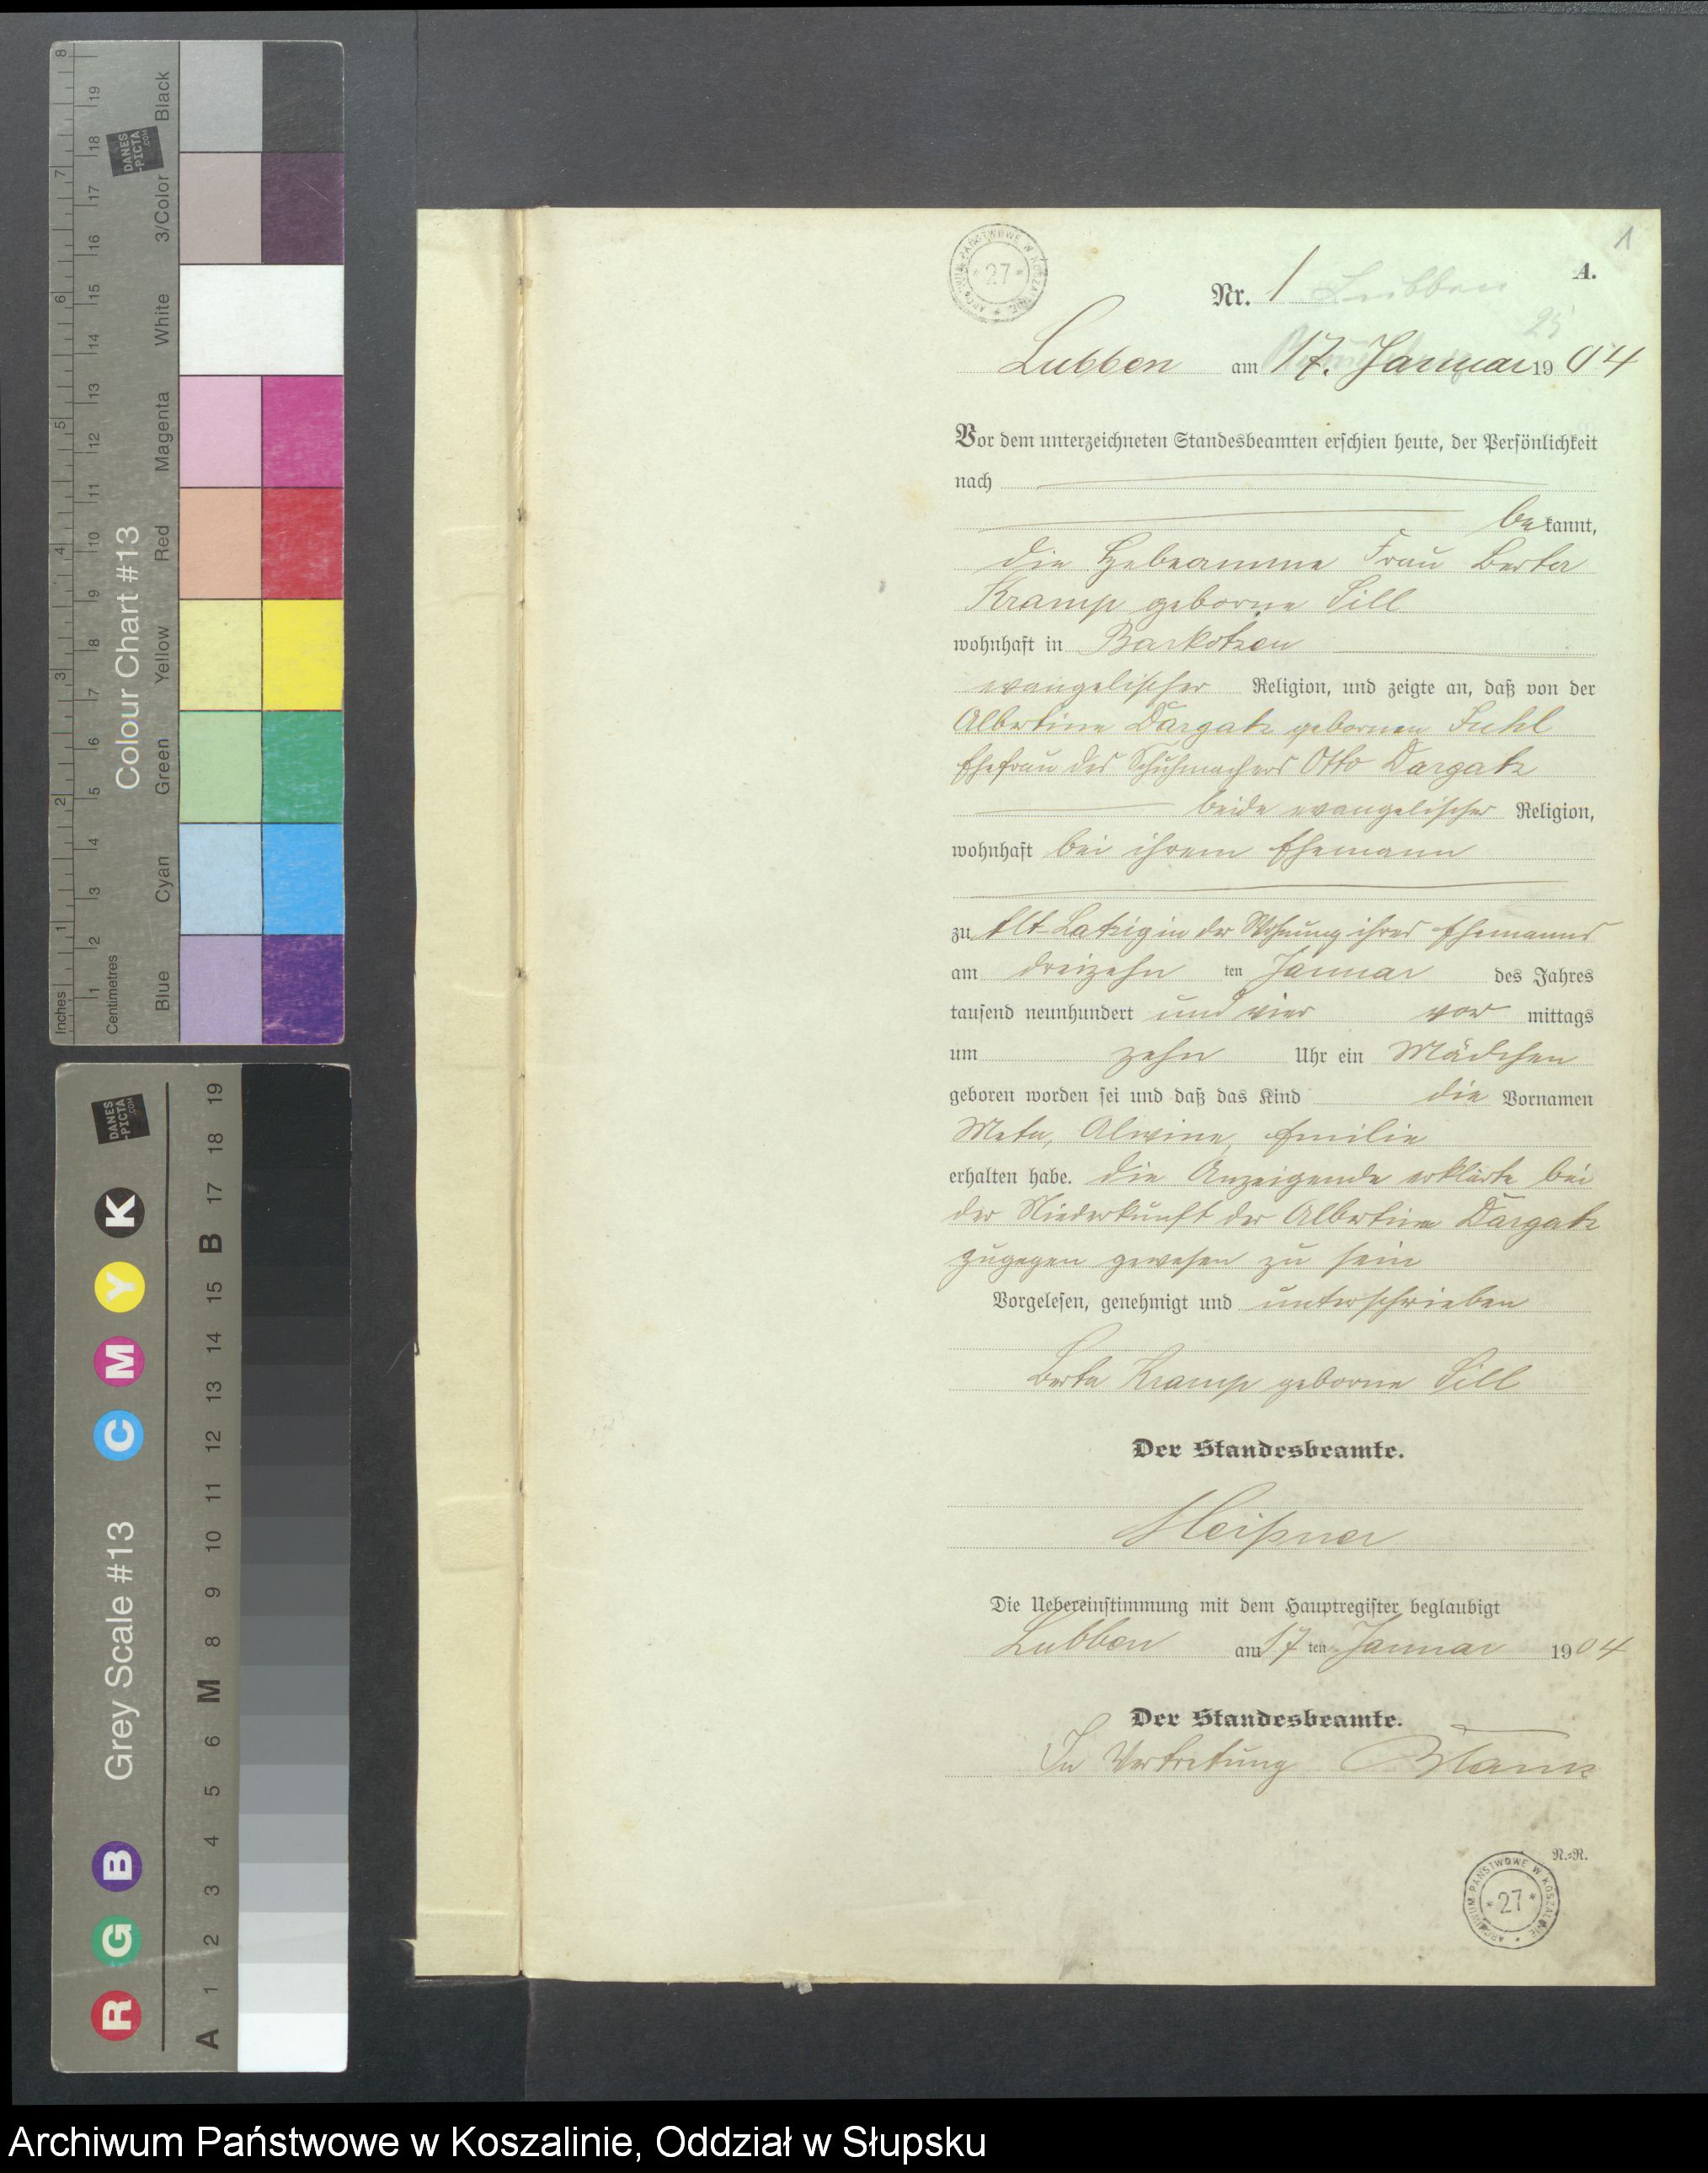 8
7
6
5
4
3
2
1
Inches
19
18
17
16
15
14
13
12
11
10
9
8
7
6
5
4
3
2
1
Centimetres
DANES
-PICTA
.COM
Colour Chart #13
Black
3/Color
White
Magenta
Red
Yellow
Green
Cyan
Blue
DANES
-PICTA
.COM
K
Y
M
C
B
G
R
Grey Scale #13
19
18
17
B
15
14
13
12
11
10
9
8
M
6
5
4
3
2
1
A
1
ARCHIWUM PAŃSTWOWE W KOSZALINIE
* 27 *
A.
Nr. 1 Lubben
25
Lubben am 17. Januar 1904
Vor dem unterzeichneten Standesbeamten erschien heute, der Persönlichkeit
nach
bekannt,
die Hebeamme Frau Berta
Kramp geborne Sill
wohnhaft in Barkotzen
evangelischer Religion, und zeigte an, daß von der
Albertine Dargatz gebornen
Ehefrau des Schuhmachers Otto Dargatz
beide evangelischer Religion,
wohnhaft bei ihrem Ehemann
zu Alt-Latzig in der Wohnung ihres Ehemanns
am dreizehn ten Januar des Jahres
tausend neunhundert und vier vor mittags
um zehn Uhr ein Mädchen
geboren worden sei und daß das Kind die Vornamen
Meta, Alwine, Emilie
erhalten habe. Die Anzeigende erklärte bei
der Niederkunft der Albertine Dargatz
zugegen gewesen zu sein
Vorgelesen, genehmigt und unterschrieben
Berta Kramp geborne Sill
Der Standesbeamte.
Meißner
Die Uebereinstimmung mit dem Hauptregister beglaubigt
Lubben am 17 ten Januar 1904
Der Standesbeamte.
In Vertretung
R.-R.
ARCHIWUM PAŃSTWOWE W KOSZALINIE
* 27 *
Archiwum Państwowe w Koszalinie, Oddział w Słupsku